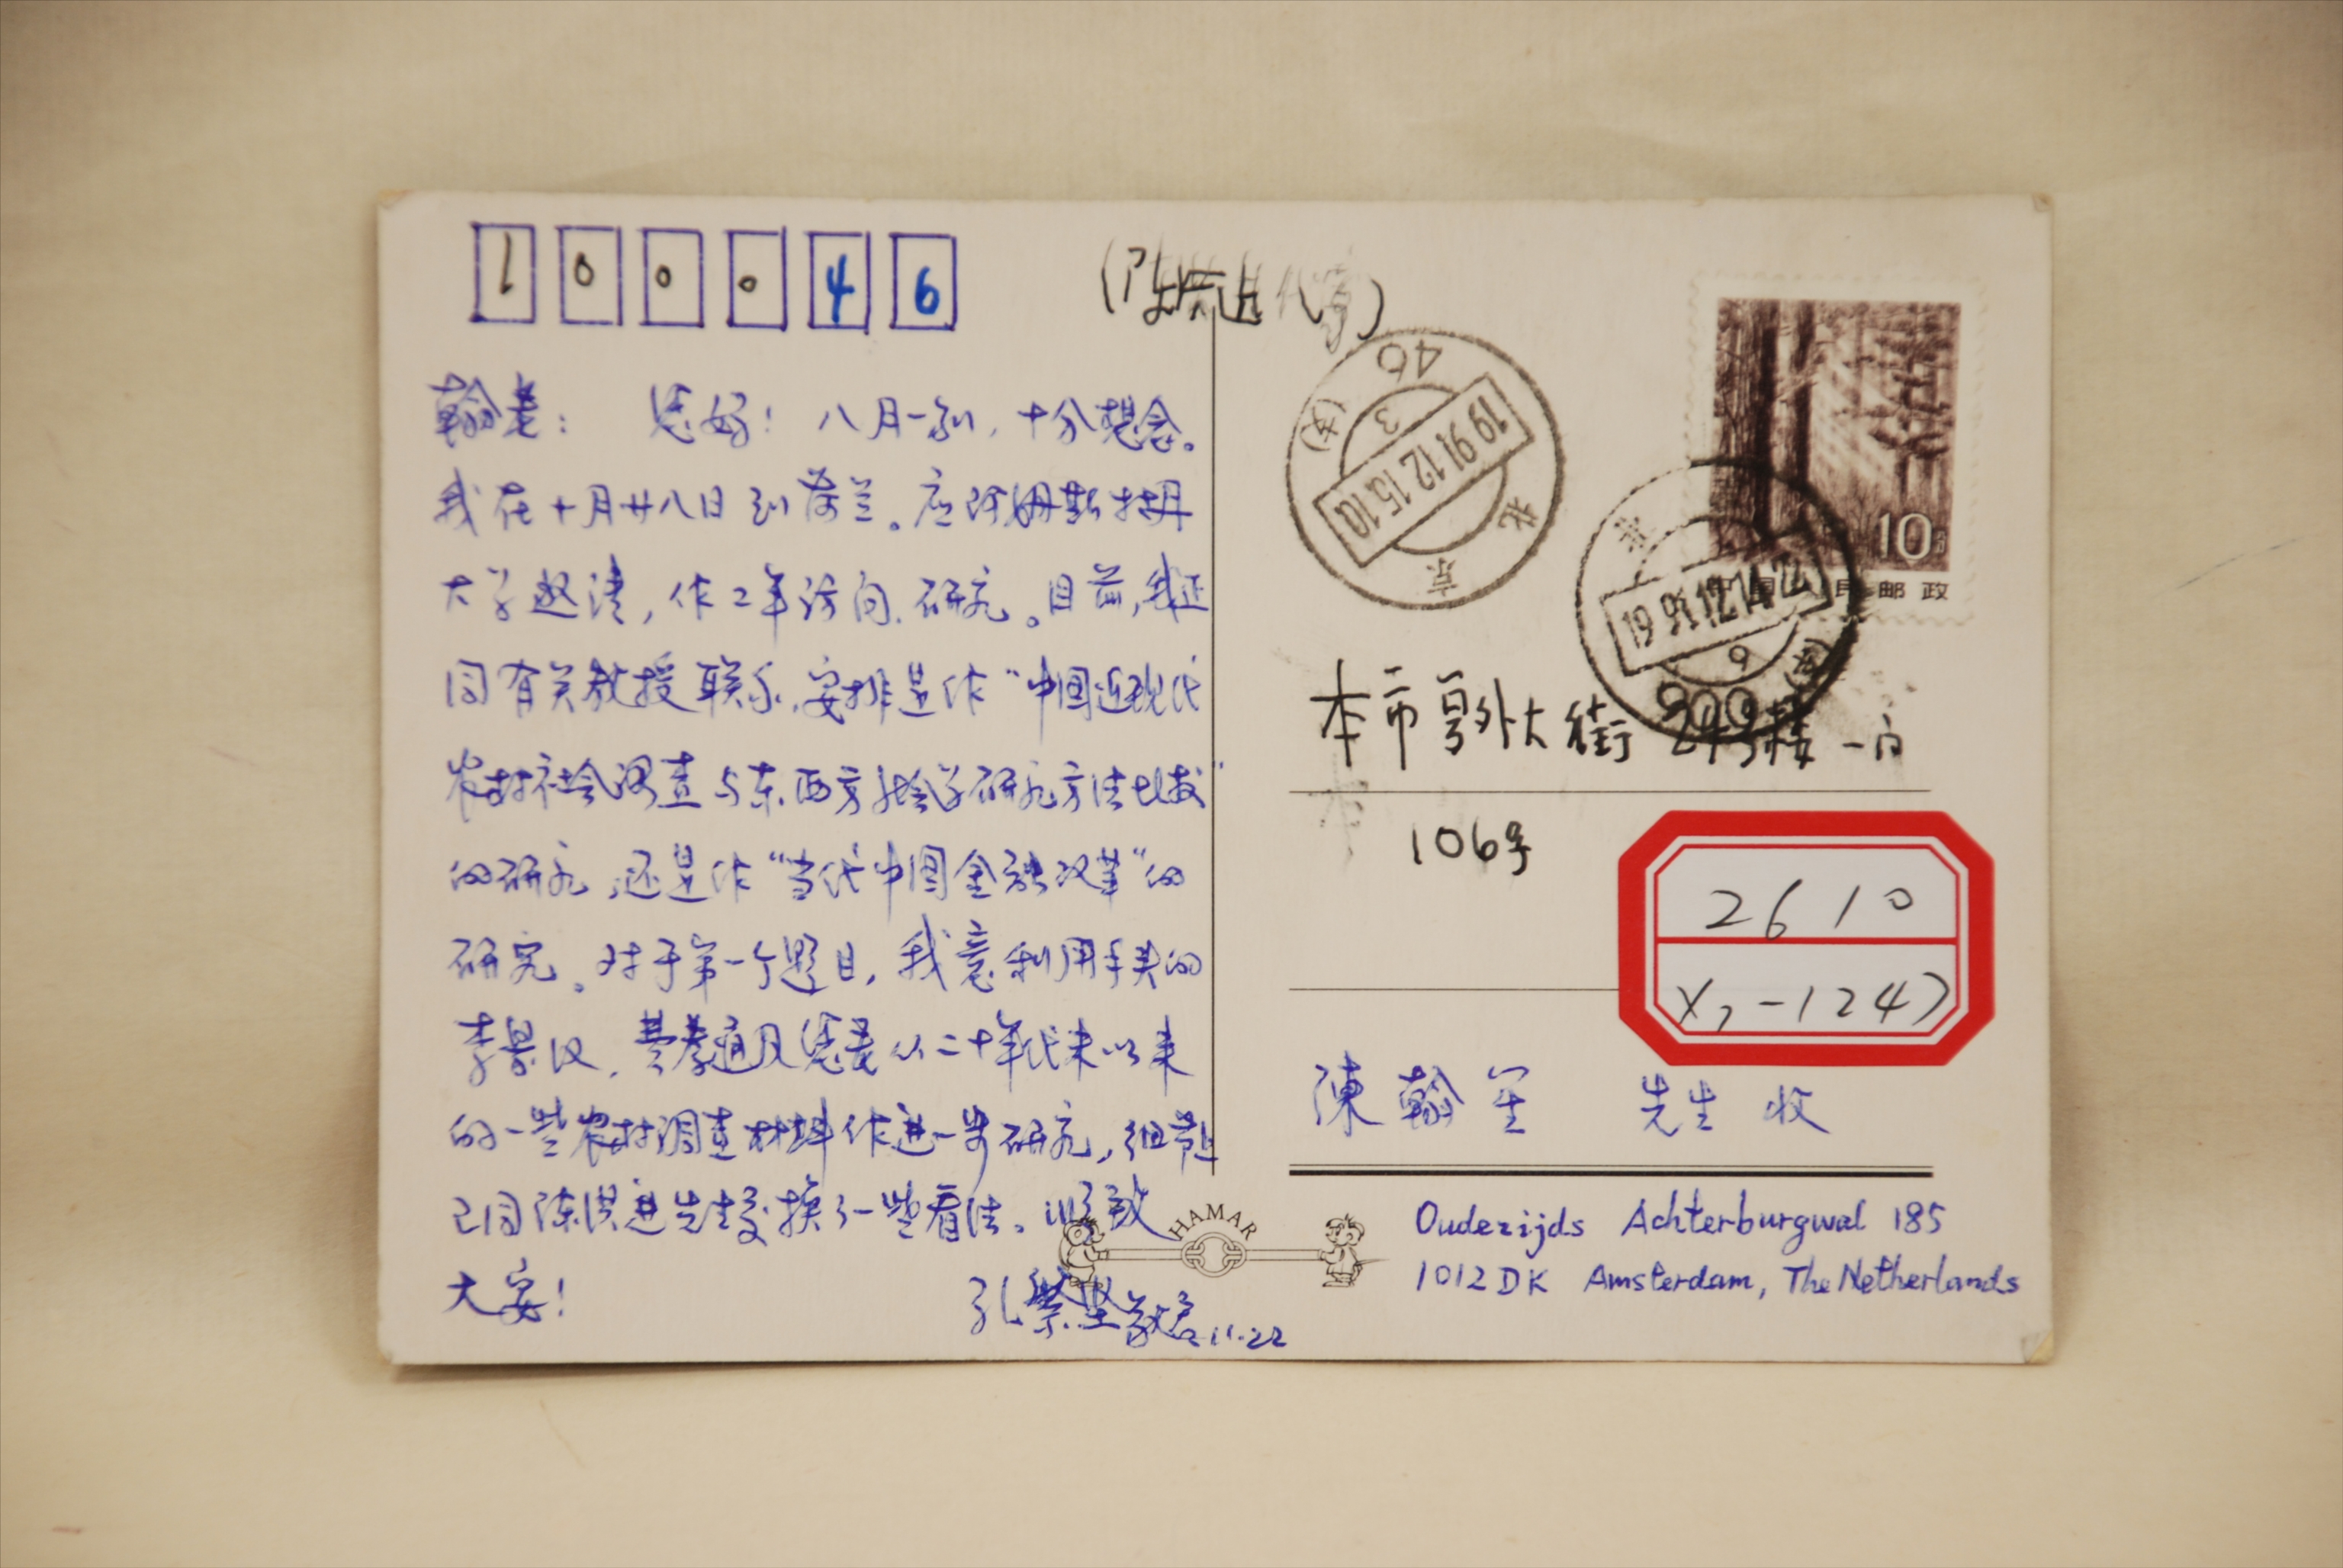 100046
(陈洪进代寄)
翰老： 您好！八月一别，十分想念。
我在十月廿八日到荷兰。应阿姆斯特丹
大学邀请，作2年访问、研究。目前，我正
同有关教授联系，安排是作“中国近现代
农村社会调查与东西方社会学研究方法比较”
的研究，还是作“当代中国金融改革”的
研究。对于第一个题目，我意利用手头的
李景汉，费孝通及您老从二十年代末以来
的一些农村调查材料作进一步研究，细节
已同陈洪进先生交换了一些看法。顺致
大安！
孔繁坚敬启 11.22
HAMAR
北京
46
3
(支)
1991.12.15.10
10分
中国人民邮政
1991.12.14.22
6
900
本市复外大街24号楼一门
106号
2610
X2-1247
陳翰笙 先生 收
Oudezijds Achterburgwal 185
1012DK Amsterdam, The Netherlands